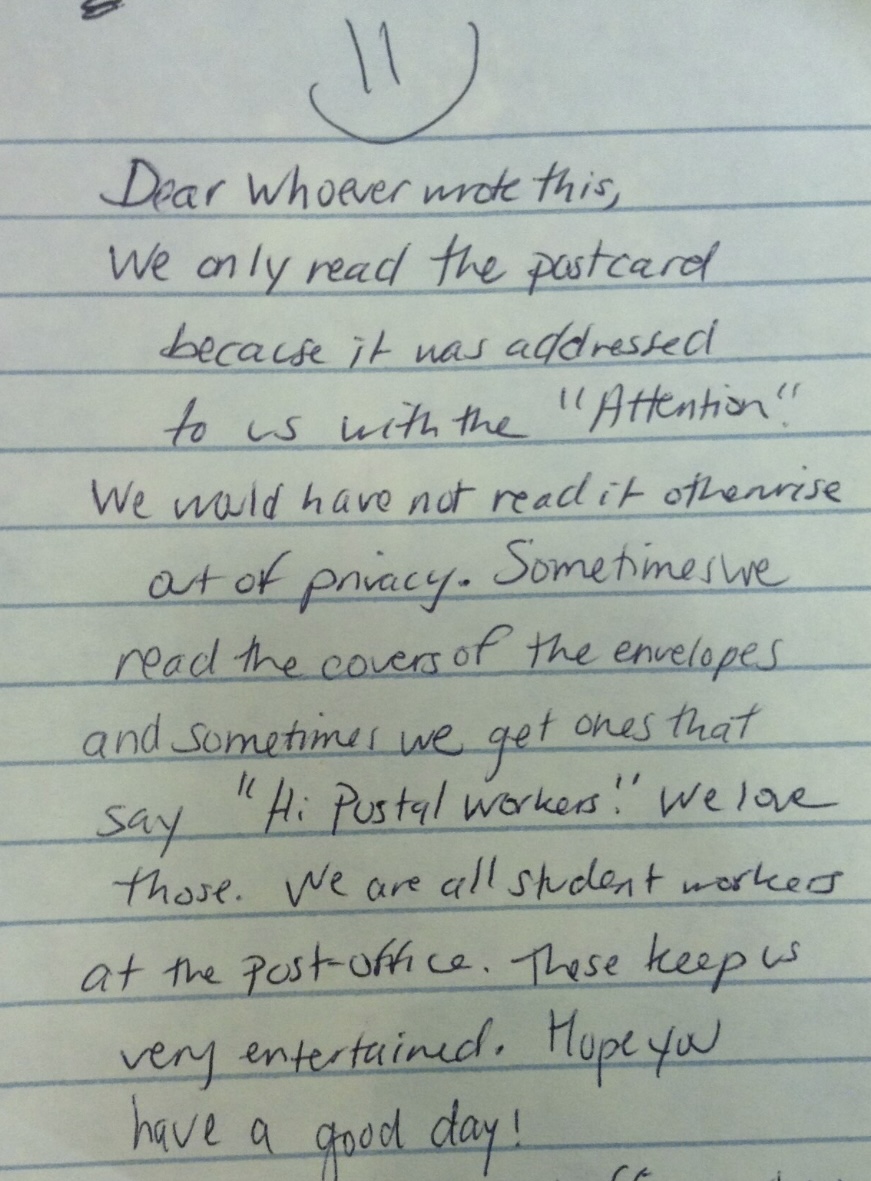 Dear Whoever wrote this,
We only read the postcard
because it was addressed
to us with the "Attention".
We would have not read it otherwise
out of privacy. Sometimes we
read the covers of the envelopes
and sometimes we get ones that
say "Hi Postal workers!" We love
those. We are all student workers
at the post-office. These keep us
very entertained. Hope you
have a good day!